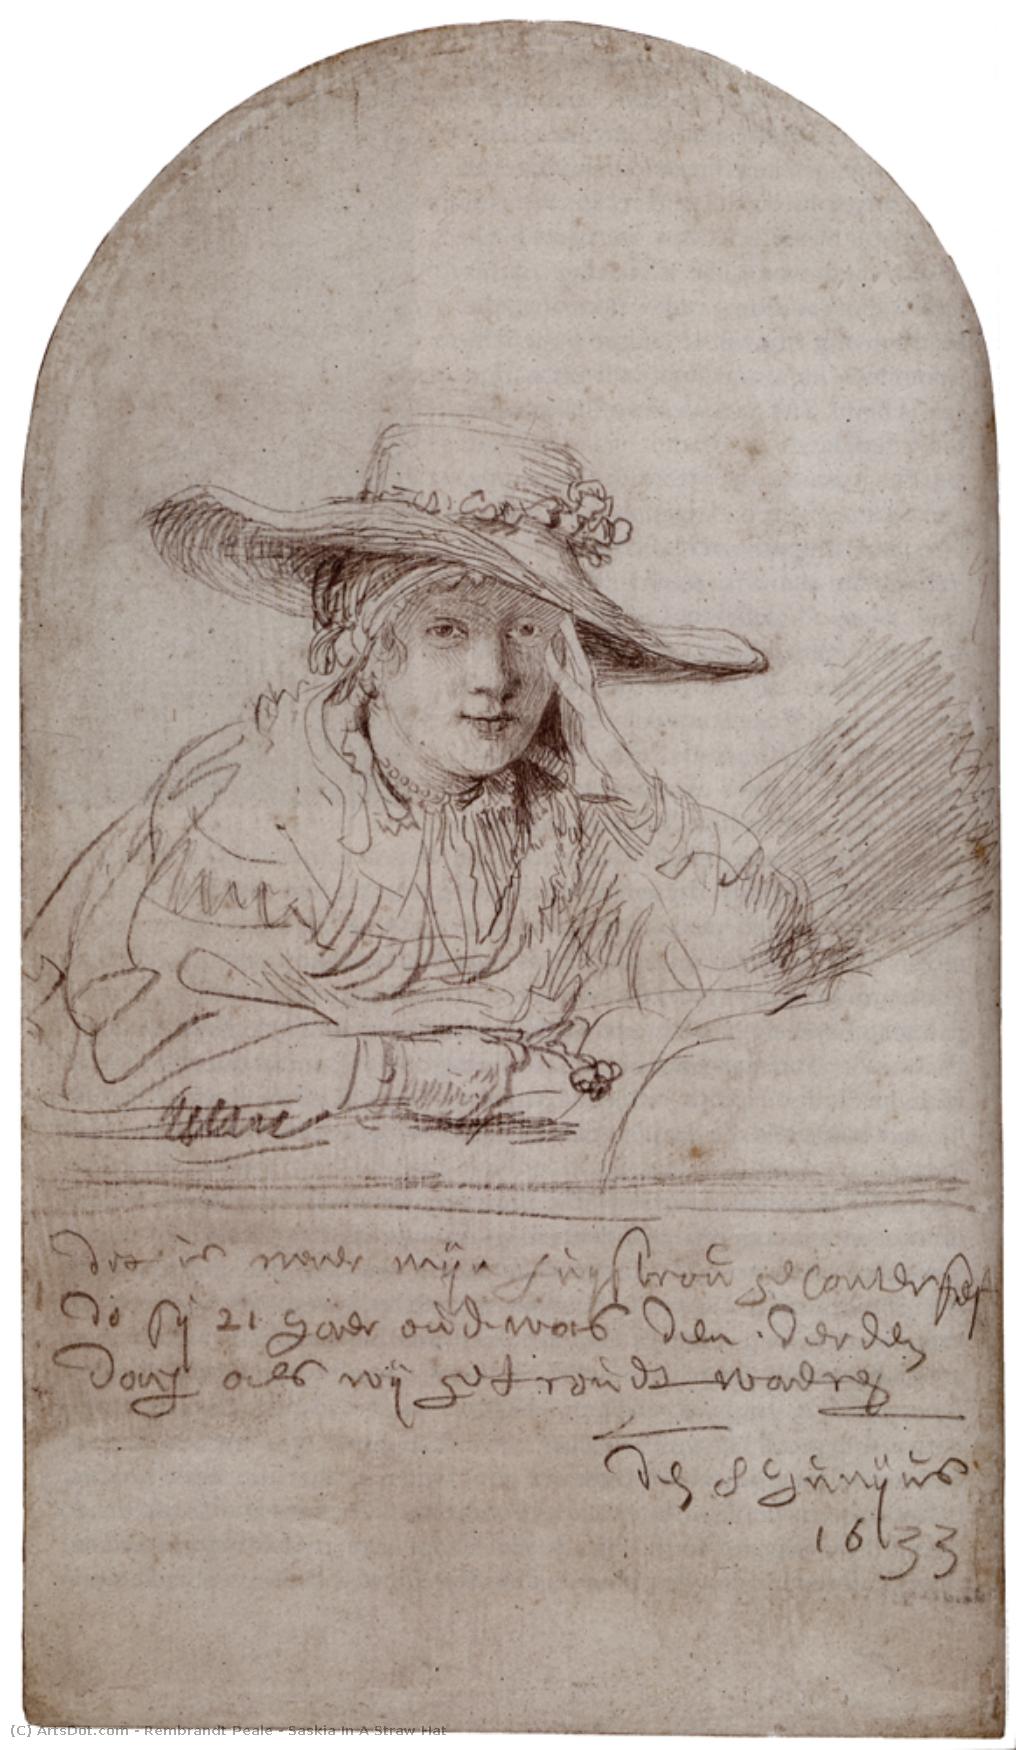 dit is naer mijn huijsvrou geconterfeit
do sij 21 jaer oud was den derden
dach als wij getroudt waeren
den 8 junijus
1633
(C) ArtsDot.com - Rembrandt Peale - Saskia In A Straw Hat